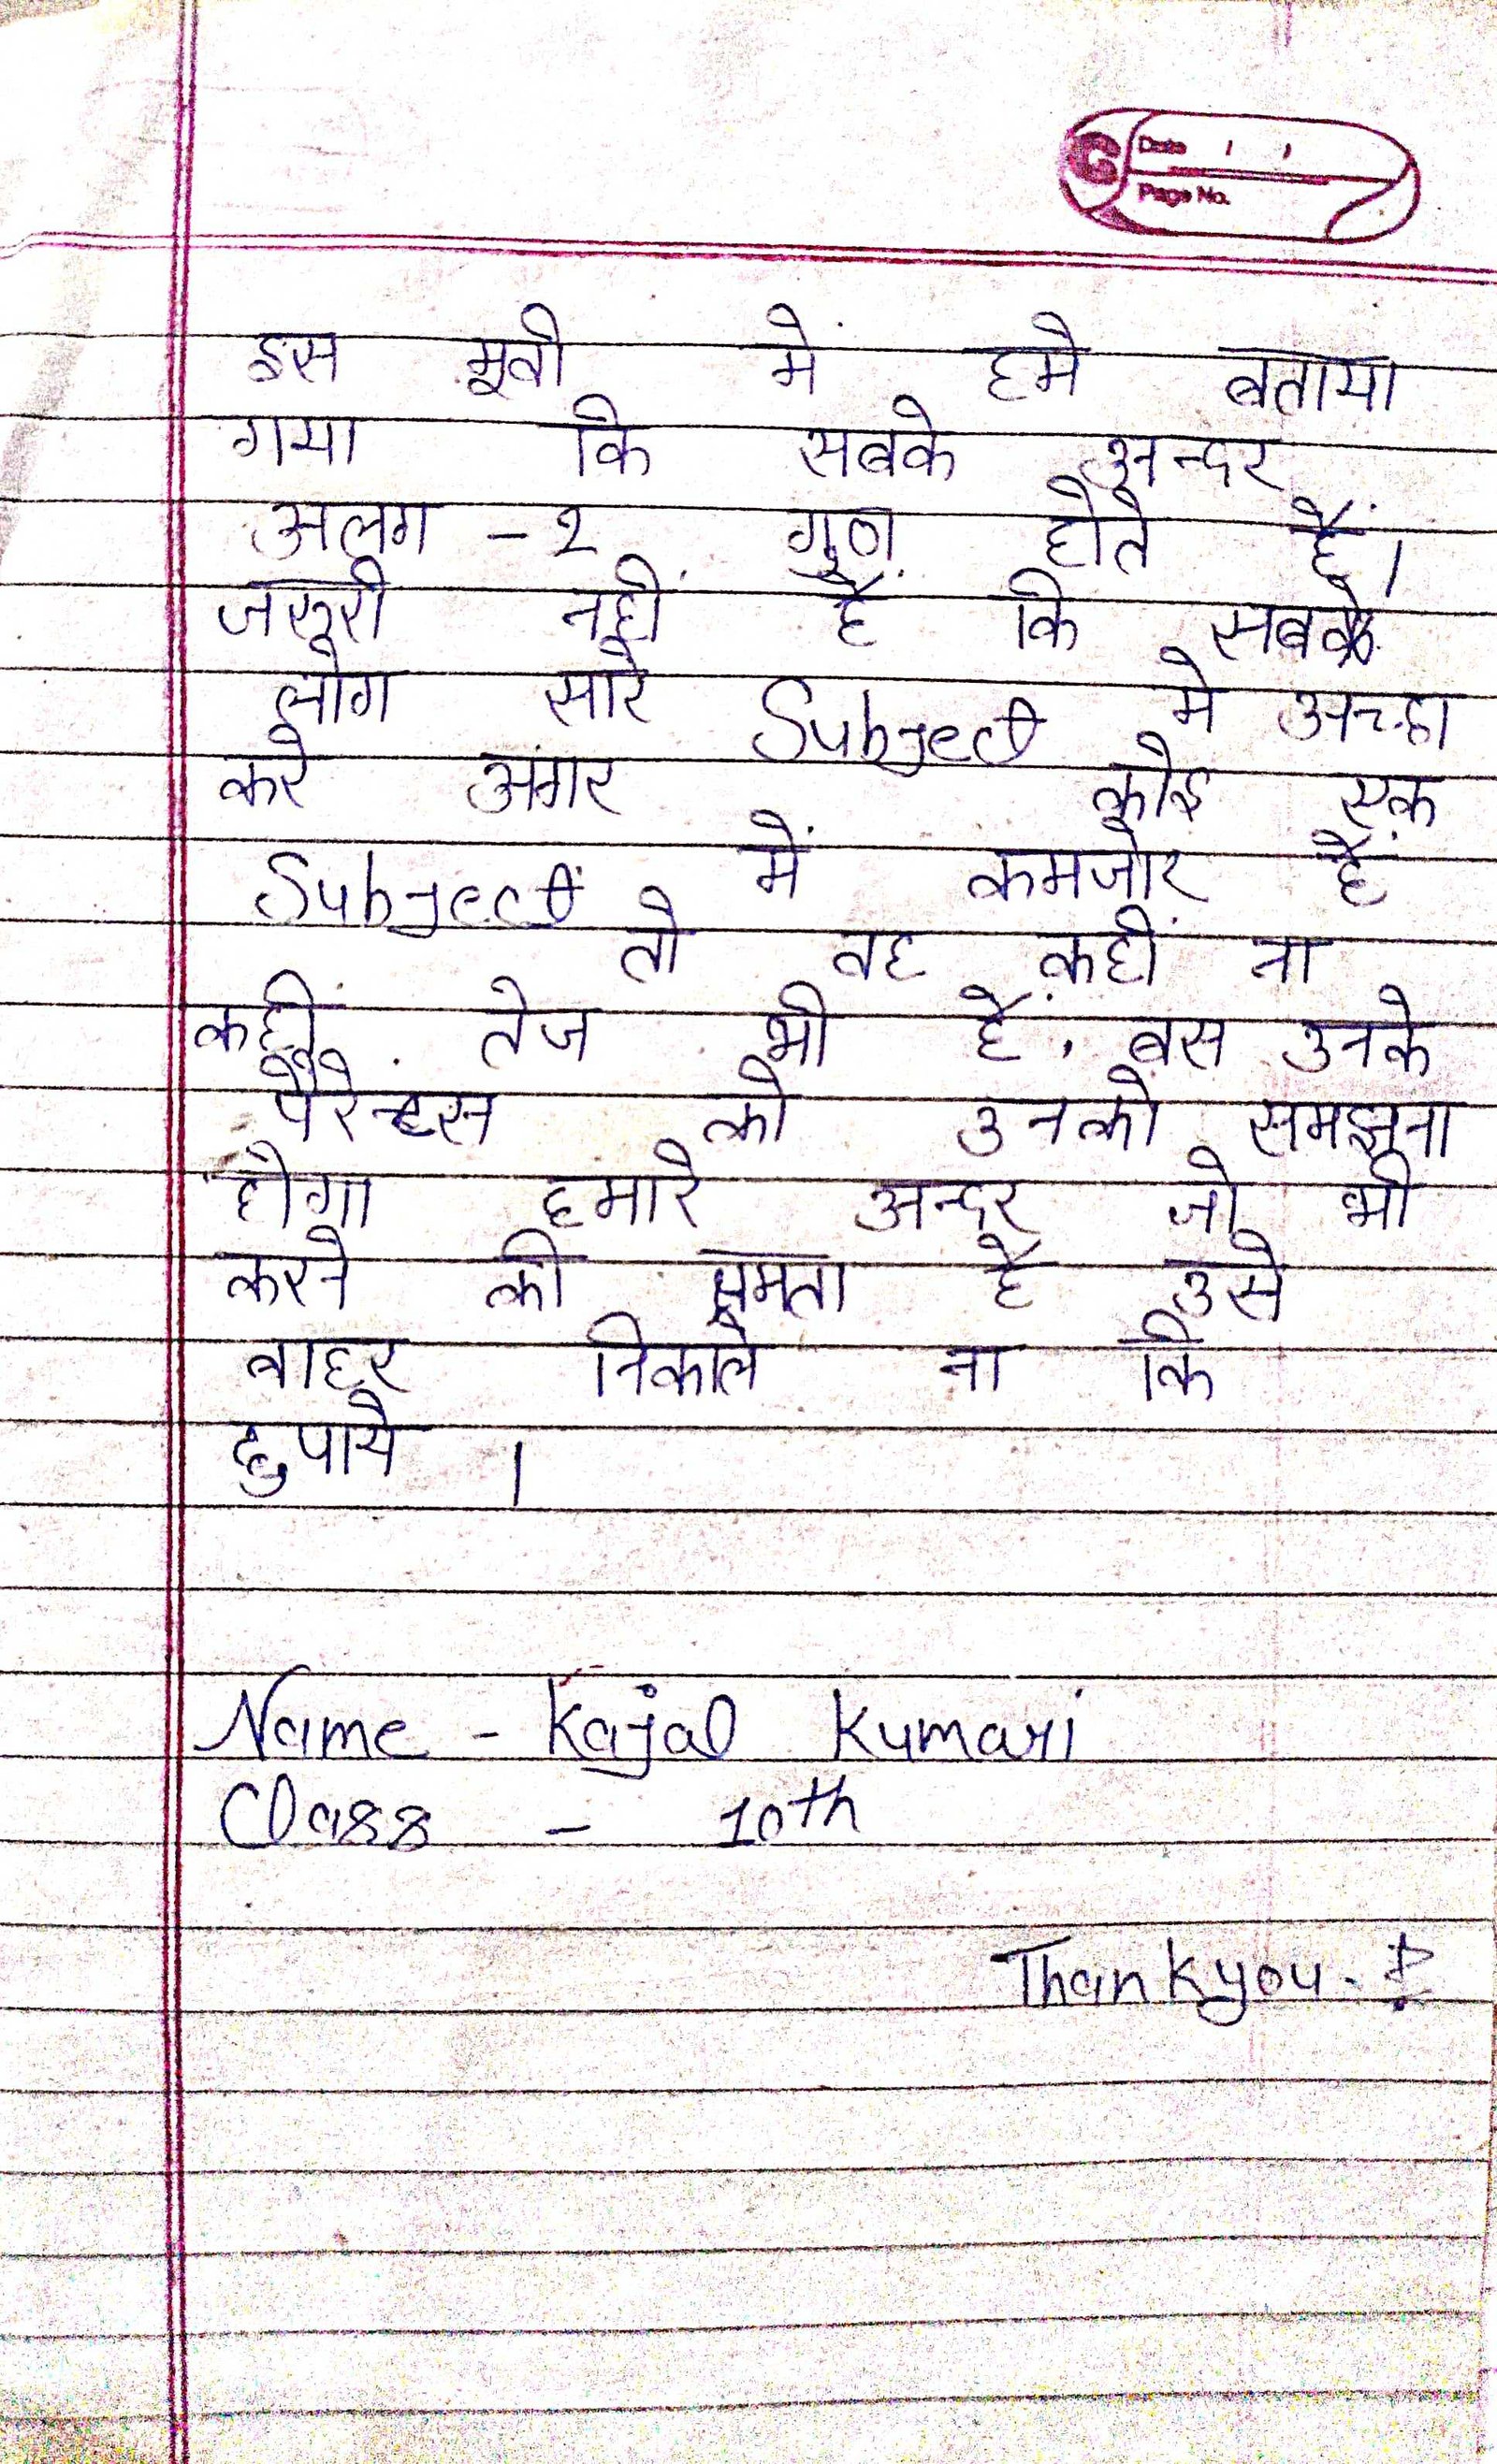 Date / /
Page No.
इस मूवी में हमे बताया
गया कि सबके अन्दर
अलग -२ गुण होते हैं।
जरूरी नहीं हैं कि सबके
लोग सारे Subject मे अच्छा
करे अगर कोई एक
Subject में कमजोर हैं
तो वह कहीं ना
कहीं तेज भी हैं, बस उनके
पैरेन्टस को उनको समझना
होगा हमारे अन्दर जो भी
करने की क्षमता है उसे
बाहर निकाले ना कि
छुपाये ।
Name - Kajal Kumari
Class - 10th
Thankyou.